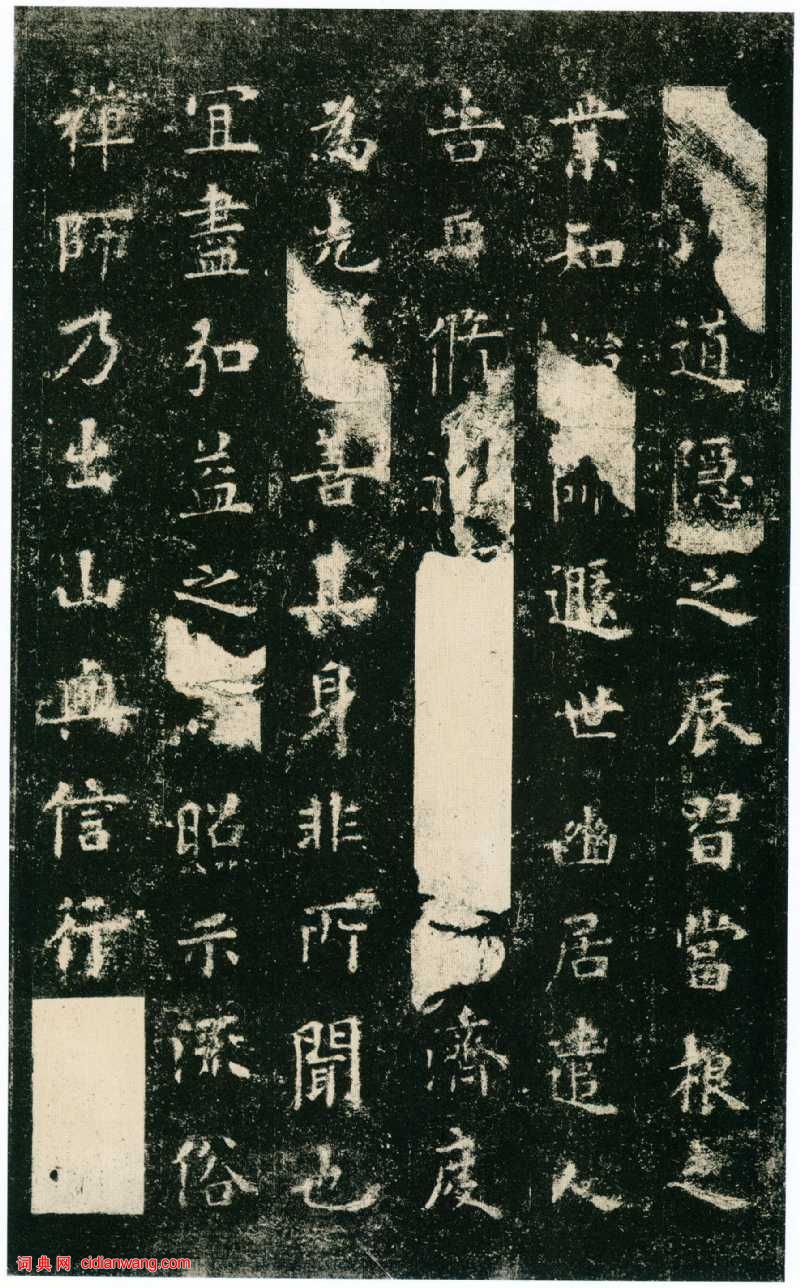 道隱之辰習當根之
業知師遯世幽居遣人
告曰脩濟度
為先善其身非所聞也
宜盡弘益之照示流俗
禪師乃出山與信行
词典网 cidianwang.com